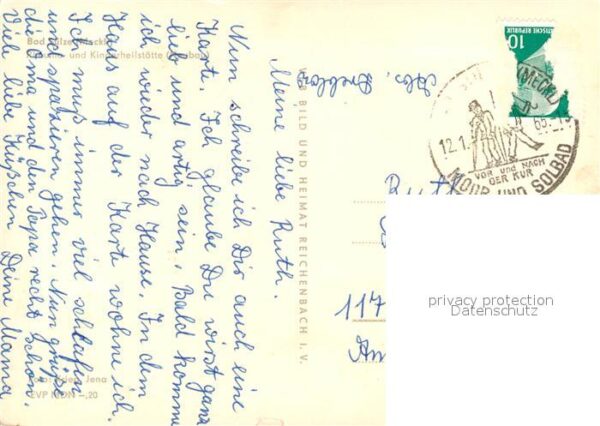 Bad Sülze (Meckl.)
und Kinderheilstätte
Meine liebe Ruth.
Nun schreibe ich Dir auch eine
Karte. Ich glaube Du wirst ganz
lieb und artig sein. Bald komme
ich wieder nach Hause. In dem
Haus auf der Karte wohne ich.
Ich muss immer viel schlafen
und spazieren gehen. Nun grüße
die Oma und den Papa recht schön.
Viele liebe Küßchen Deine Mama
Jena
EVP MDN -,20
VEB BILD UND HEIMAT REICHENBACH I. V.
Abs.
10
DEUTSCHE REPUBLIK
(MECKL)
12.1. 65.-13
VOR und NACH
DER KUR
MOOR UND SOLBAD
Ruth
117
Am
privacy protection
Datenschutz